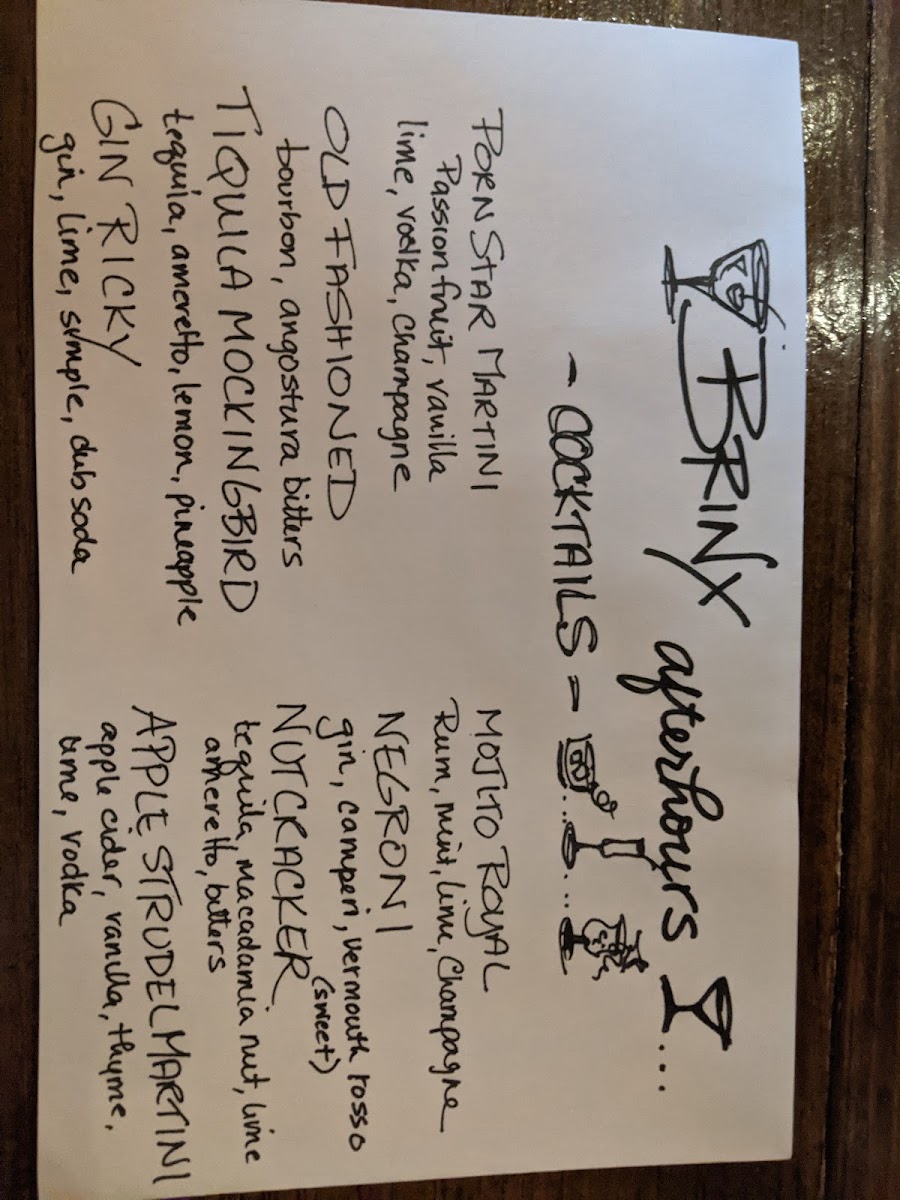 BRINX afterhours ...
- COCKTAILS -
PORN STAR MARTINI
Passionfruit, vanilla
lime, vodka, champagne
OLD FASHIONED
bourbon, angostura bitters
TIQUILA MOCKINGBIRD
tequila, ameretto, lemon, pineapple
GIN RICKY
gin, lime, symple, club soda
MOJITO ROYAL
Rum, mint, lime, Champagne
NEGRONI
gin, camperi, vermouth rosso
(sweet)
NUTCRACKER
tequila, macadamia nut, lime
ameretto, bitters
APPLE STRUDEL MARTINI
apple cider, vanilla, thyme,
lime, vodka